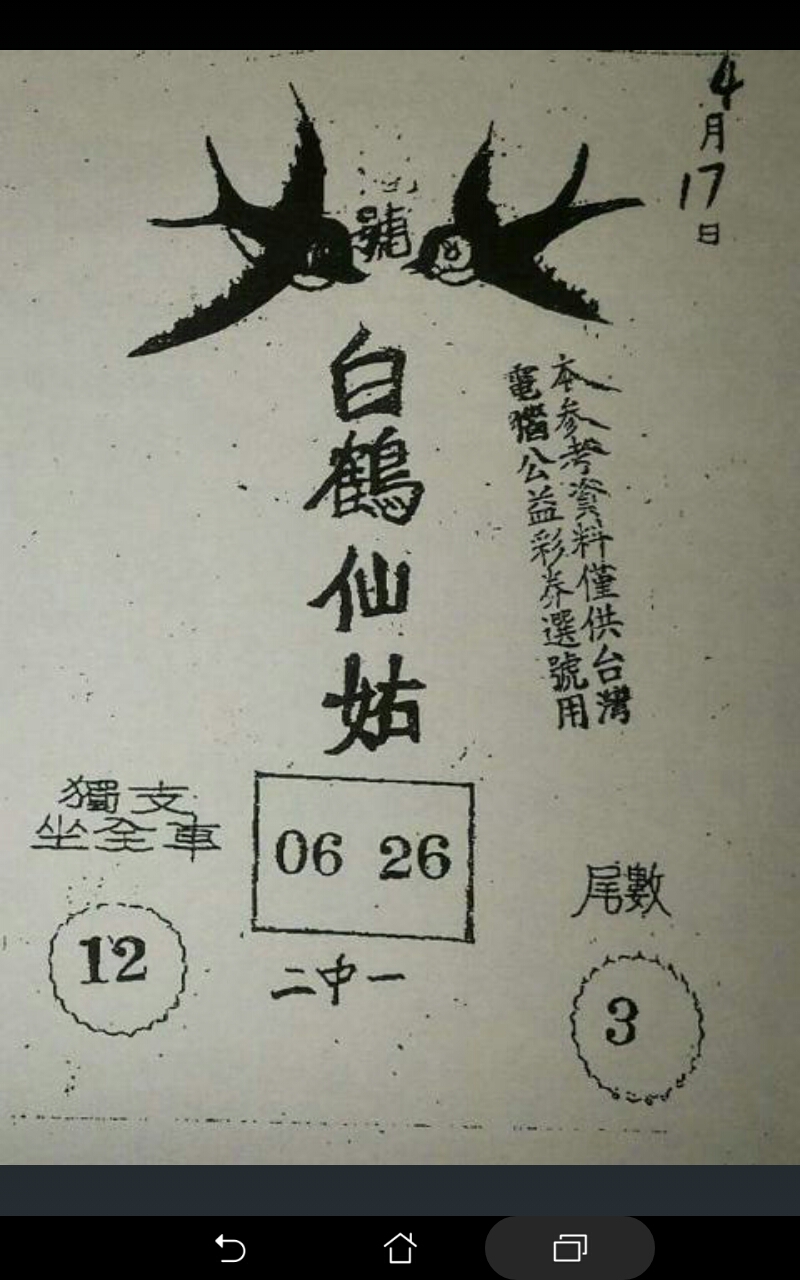 4月17日
號
白鶴仙姑
本參考資料僅供台灣
電腦公益彩券選號用
獨支
坐全車
12
06 26
二中一
尾數
3